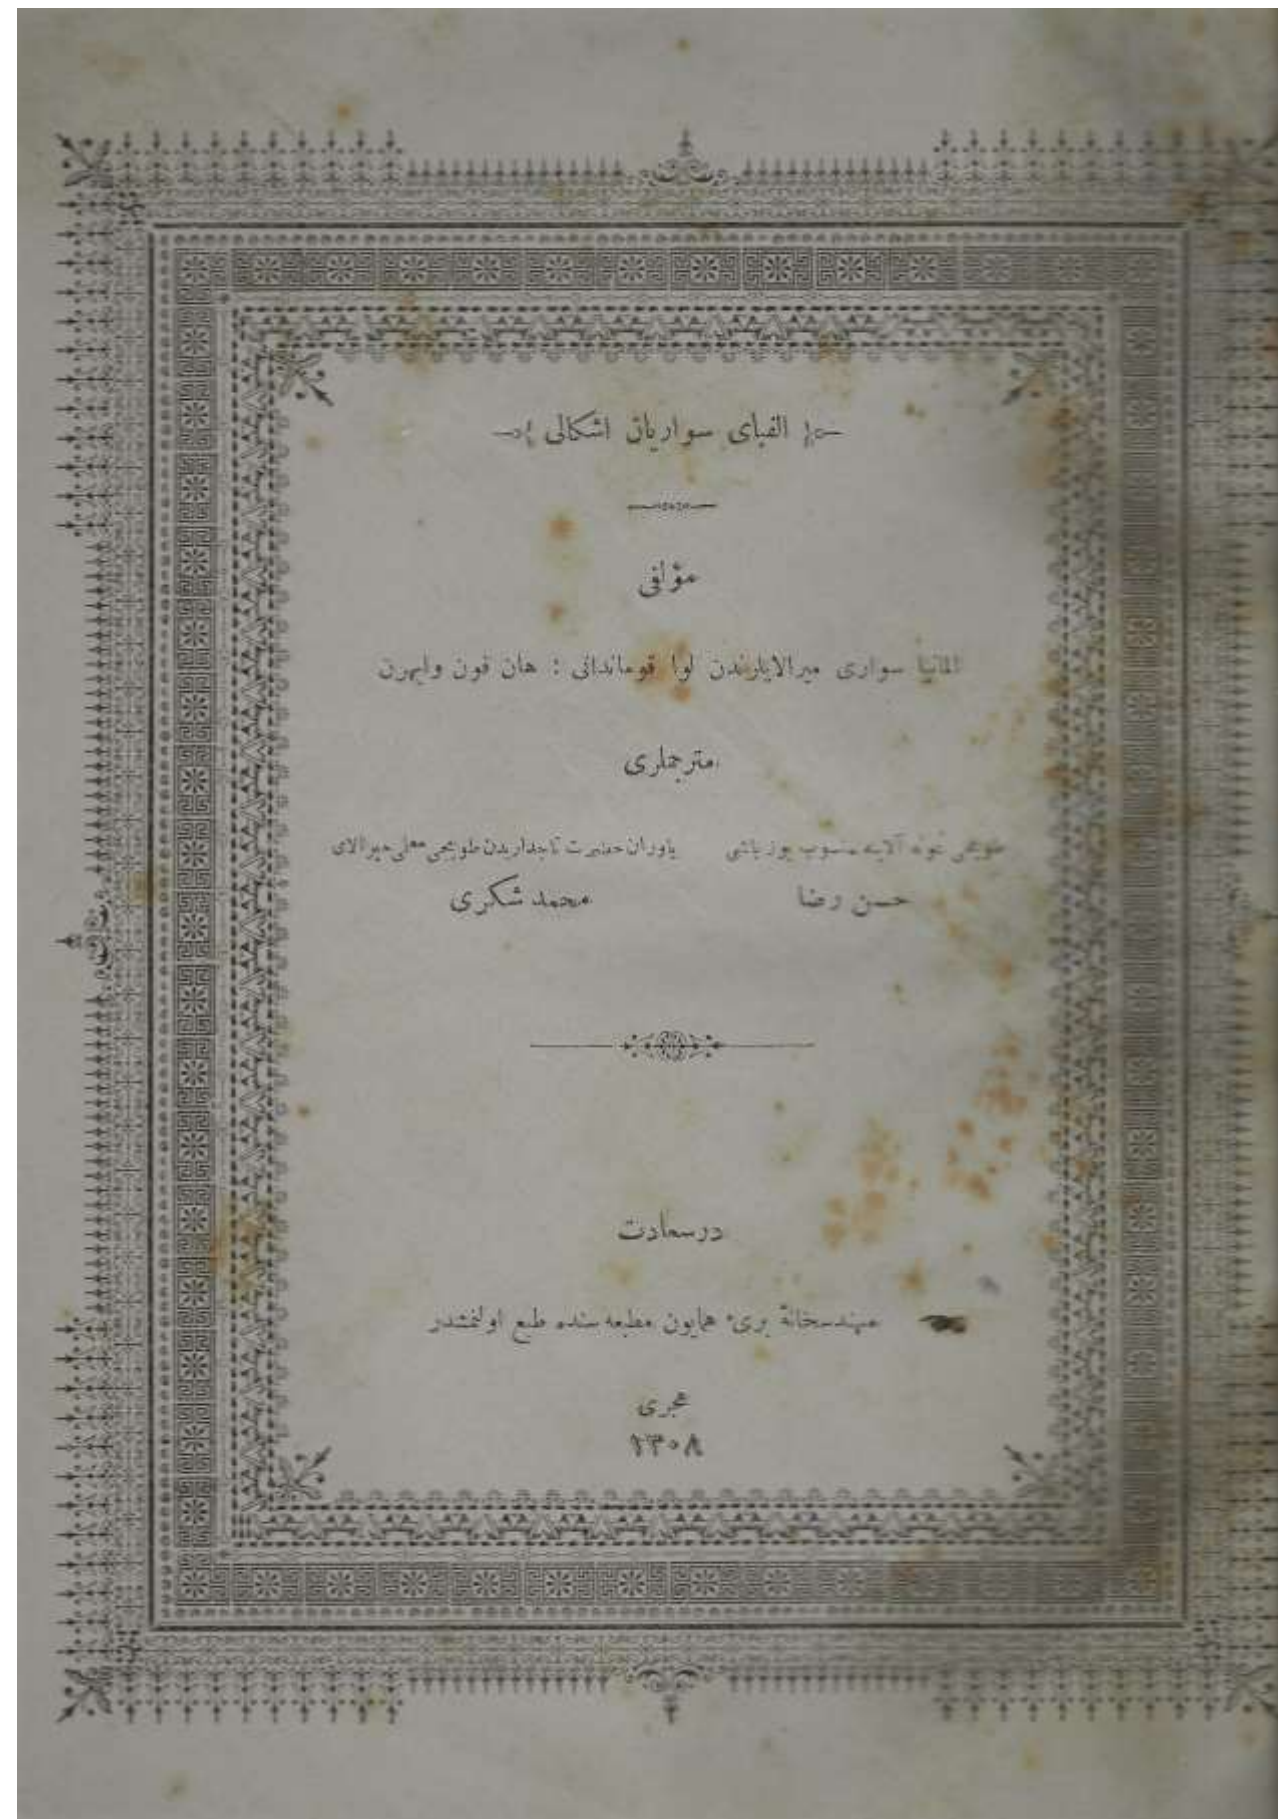 الفبای سواریان اشکالی
مؤلفی
المانیا سواری میرالایلرندن لوا قوماندانی : هان فون وایهرن
مترجملری
طوپجی نمونه آلاینه منسوب یوزباشی
حسن رضا
یاوران حضرت تاجداریدن طوپجی معلمی میرالای
محمد شکری
درسعادت
مهندسخانهٔ بریء همایون مطبعه سنده طبع اولنمشدر
هجری
١٣٠٨